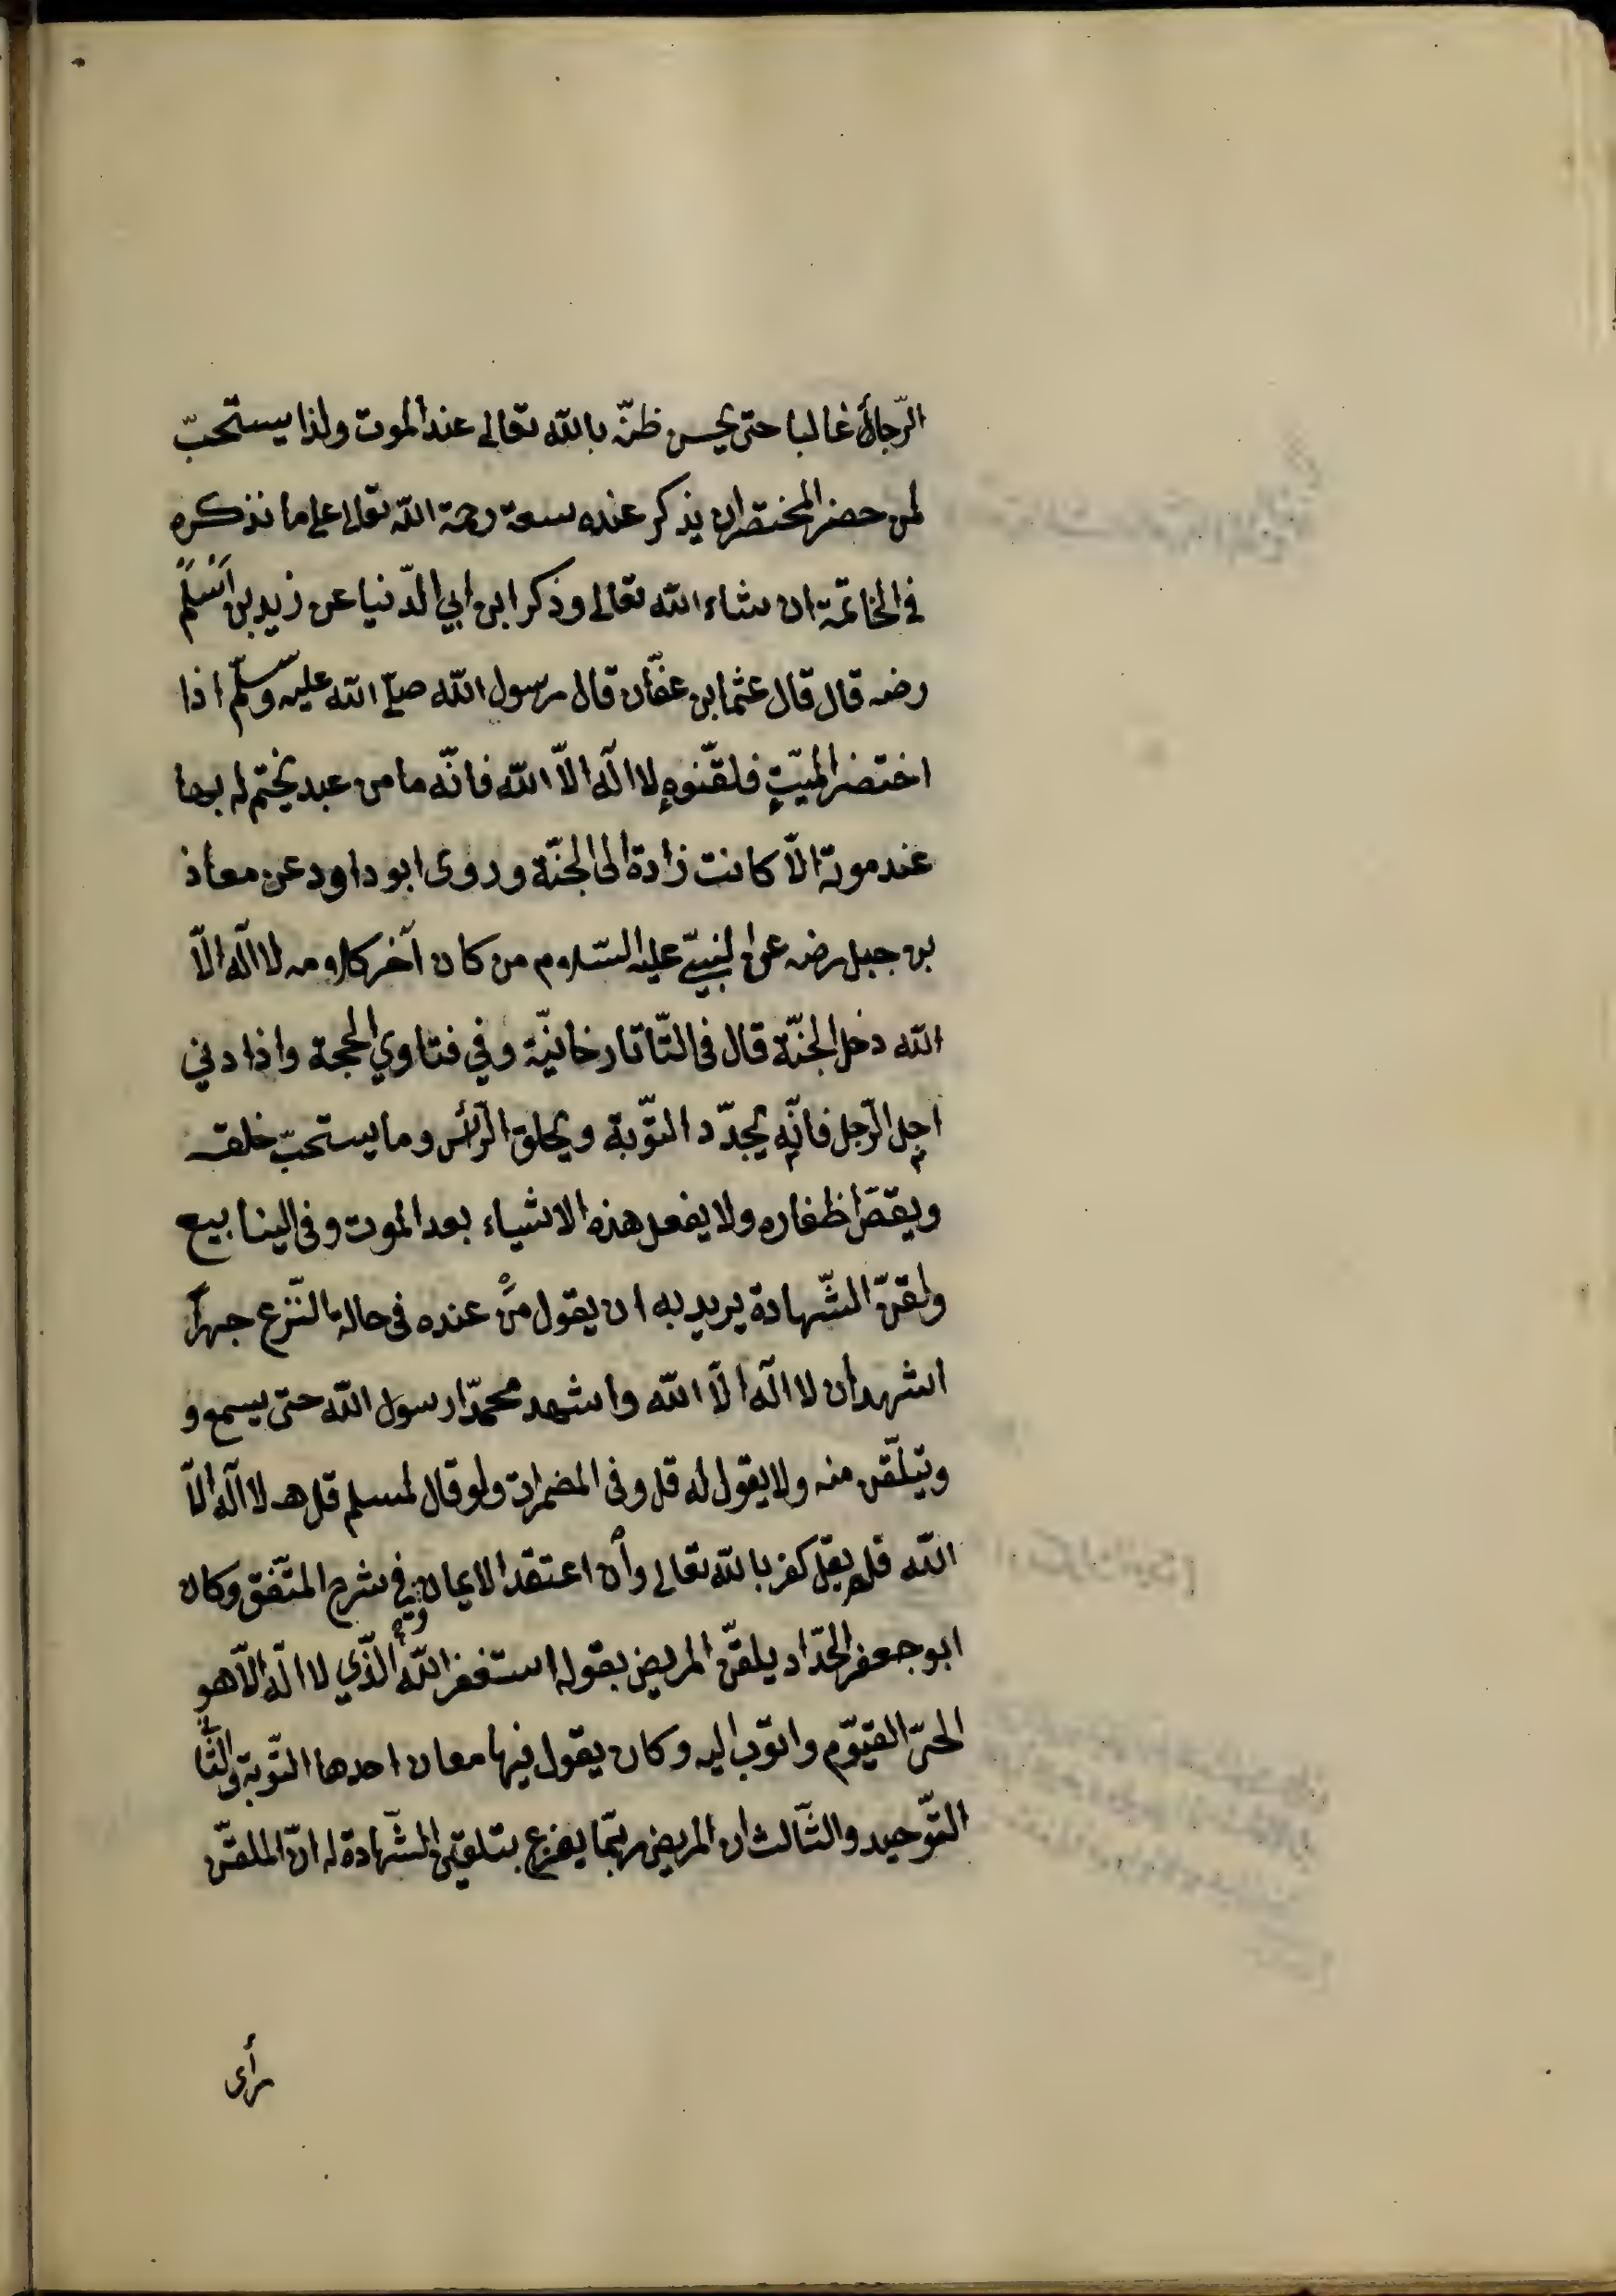 الرّجاء غالبا حتى يحسن ظنّه بالله تعالى عند الموت ولذا يستحبّ
لمن حضر المختضر ان يذكر عنده سعة رحمة الله تعالى على ما نذكره
في الخاتمة ان شاء الله تعالى وذكر ابن ابي الدّنيا عن زيد بن اسلم
رضه قال قال عثمابن عفّان قال رسول الله صلّى الله عليه وسلّم اذا
اختضر الميّت فلقّنوه لا اله الّا الله فانّه ما من عبد يختم له بها
عند موته الّا كانت زاده الى الجنّة وروى ابو داود عن معاذ
بن جبل رضه عن النبيّ عليه السّلام من كان آخر كلامه لا اله الّا
الله دخل الجنّة قال في التّاتارخانيّة وفي فتاوي الحجة واذا دني
اجل الرّجل فانّه يجدّد التّوبة ويحلق الرّأس وما يستحبّ خلقه
ويقصّ اظفاره ولا يفعل هذه الاشياء بعد الموت وفي الينابيع
ولقّن الشّهادة يريد به ان يقول مَنْ عنده في حالة النّزع جهرًا
اشهد أن لا اله الّا الله واشهد محمّدا رسول الله حتى يسمع و
ويتلّقن منه ولا يقول له قل وفي المضمرات ولو قال لمسلم قل لا اله الّا
الله فلم يقل كفر بالله تعالى وأن اعتقد الايمان وفي شرح المتّفق وكان
ابو جعفر الحدّاد يلقّن المريض بقوله استغفر الله الّذي لا اله الّا هو
الحيّ القيّوم واتوب اليه وكان يقول فيها معان احدها التّوبة والثّا
التّوحيد والثّالث ان المريض ربّما يفزع بتلقين الشّهادة له انّ الملقّن
رأى